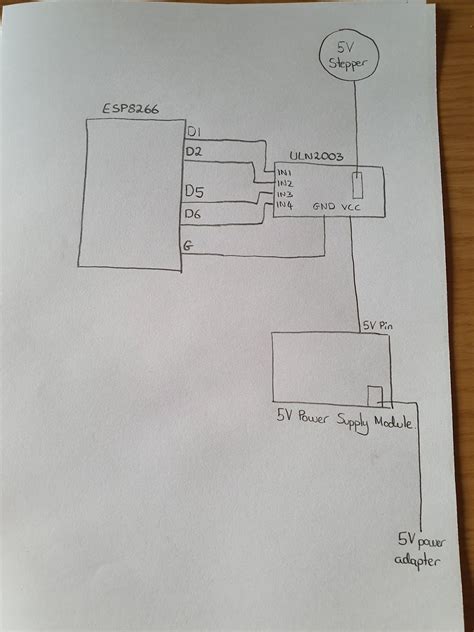 5V
Stepper
ESP8266
D1
D2
D5
D6
G
ULN2003
IN1
IN2
IN3
IN4
GND VCC
5V Pin
5V Power Supply Module.
5V power
adapter